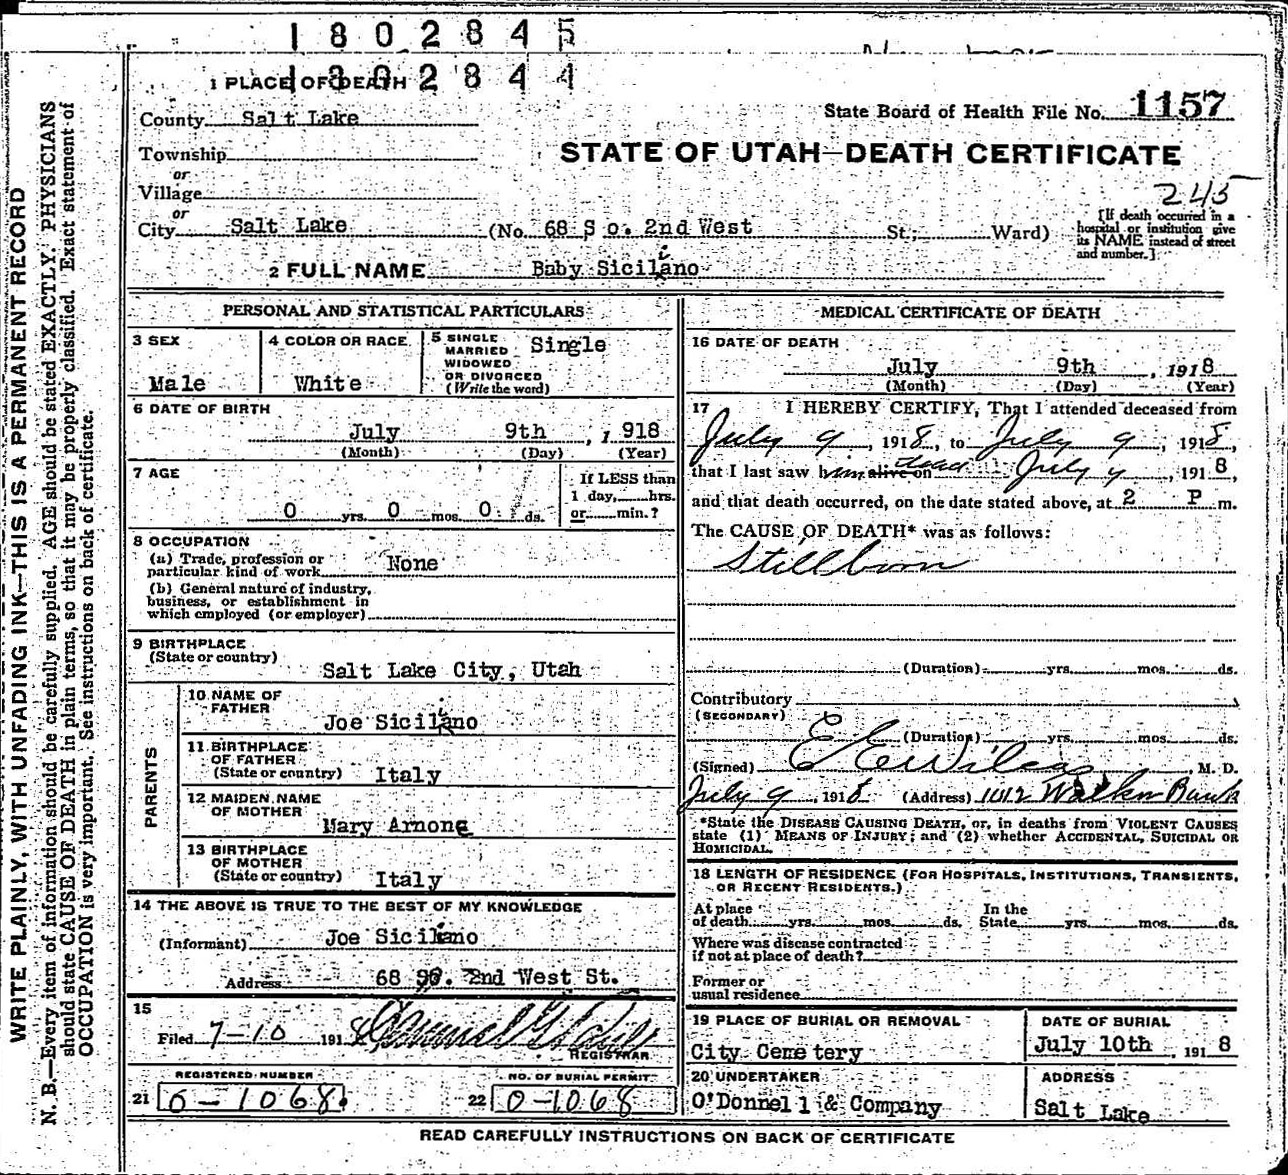 1802845
1802844
1 PLACE OF DEATH
State Board of Health File No. 1157
County Salt Lake
STATE OF UTAH—DEATH CERTIFICATE
Township
or
Village
245
or
City Salt Lake (No. 68 So. 2nd West St.; Ward)
[If death occurred in a
hospital or institution give
its NAME instead of street
and number.]
2 FULL NAME Baby Siciliano
PERSONAL AND STATISTICAL PARTICULARS
3 SEX
Male
4 COLOR OR RACE
White
5 SINGLE
MARRIED
WIDOWED
OR DIVORCED
(Write the word)
Single
6 DATE OF BIRTH
July 9th, 1918
(Month) (Day) (Year)
7 AGE
0 yrs. 0 mos. 0 ds.
If LESS than
1 day, hrs.
or min.?
8 OCCUPATION
(a) Trade, profession or
particular kind of work None
(b) General nature of industry,
business, or establishment in
which employed (or employer)
9 BIRTHPLACE
(State or country)
Salt Lake City, Utah
PARENTS
10 NAME OF
FATHER
Joe Siciliano
11 BIRTHPLACE
OF FATHER
(State or country) Italy
12 MAIDEN NAME
OF MOTHER
Mary Arnone
13 BIRTHPLACE
OF MOTHER
(State or country) Italy
14 THE ABOVE IS TRUE TO THE BEST OF MY KNOWLEDGE
(Informant) Joe Siciliano
Address 68 So. 2nd West St.
15
Filed 7-10 1918
REGISTRAR
REGISTERED NUMBER
21 0-1068.
NO. OF BURIAL PERMIT
22 0-1068
MEDICAL CERTIFICATE OF DEATH
16 DATE OF DEATH
July 9th, 1918
(Month) (Day) (Year)
17 I HEREBY CERTIFY, That I attended deceased from
July 9, 1918, to July 9, 1918,
that I last saw him alive on dead July 9, 1918,
and that death occurred, on the date stated above, at 2 P m.
The CAUSE OF DEATH* was as follows:
Stillborn
(Duration) yrs. mos. ds.
Contributory
(SECONDARY)
(Duration) yrs. mos. ds.
(Signed) E E Wilcox M. D.
July 9, 1918 (Address) 1012 Walker Bank
*State the DISEASE CAUSING DEATH, or, in deaths from VIOLENT CAUSES
state (1) MEANS OF INJURY; and (2) whether ACCIDENTAL, SUICIDAL OR
HOMICIDAL.
18 LENGTH OF RESIDENCE (FOR HOSPITALS, INSTITUTIONS, TRANSIENTS,
OR RECENT RESIDENTS.)
At place
of death yrs. mos. ds. In the
State yrs. mos. ds.
Where was disease contracted
if not at place of death?
Former or
usual residence
19 PLACE OF BURIAL OR REMOVAL
City Cemetery
DATE OF BURIAL
July 10th, 1918
20 UNDERTAKER
O'Donnell & Company
ADDRESS
Salt Lake
READ CAREFULLY INSTRUCTIONS ON BACK OF CERTIFICATE
WRITE PLAINLY, WITH UNFADING INK—THIS IS A PERMANENT RECORD
N. B.—Every item of information should be carefully supplied. AGE should be stated EXACTLY. PHYSICIANS
should state CAUSE OF DEATH in plain terms, so that it may be properly classified. Exact statement of
OCCUPATION is very important. See instructions on back of certificate.